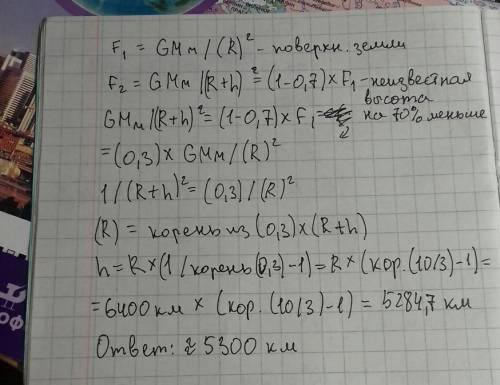 F₁ = GMm/(R)² - поверхн. земли
F₂ = GMm/(R+h)² = (1-0,7)×F₁ - неизвестная высота на 70% меньше
GMm/(R+h)² = (1-0,7)×F₁ =
= (0,3)× GMm/(R)²
1/(R+h)² = (0,3)/(R)²
(R) = корень из (0,3)×(R+h)
h = R×(1/корень(0,3)-1) = R×(кор.(10/3)-1) =
= 6400 км × (кор.(10/3)-1) = 5284,7 км
Ответ: ≈ 5300 км